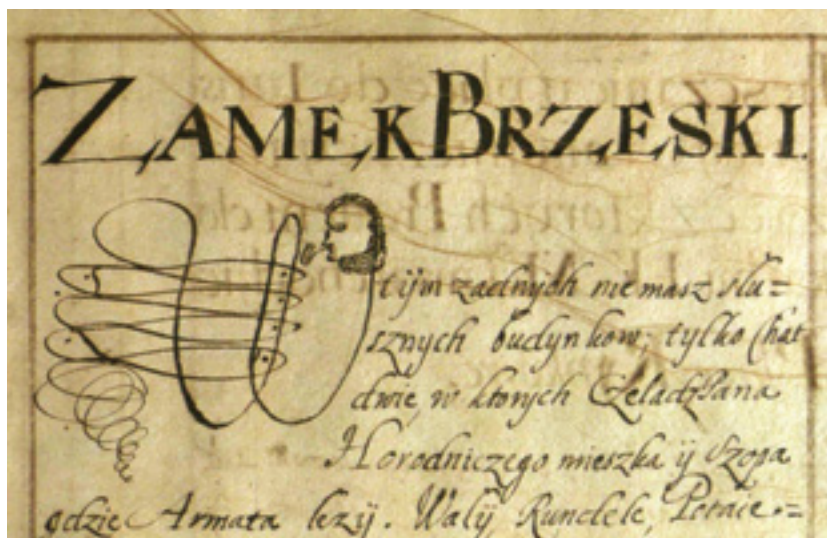 ZAMEK BRZESKI
W tijm zadnych nie masz słu=
sznych budynkow; tylko Chat
dwie, w ktorych Czeladz Pana
Horodniczego mieszka ij Szopa
gdzie Armata lezij. Walij, Rundele,